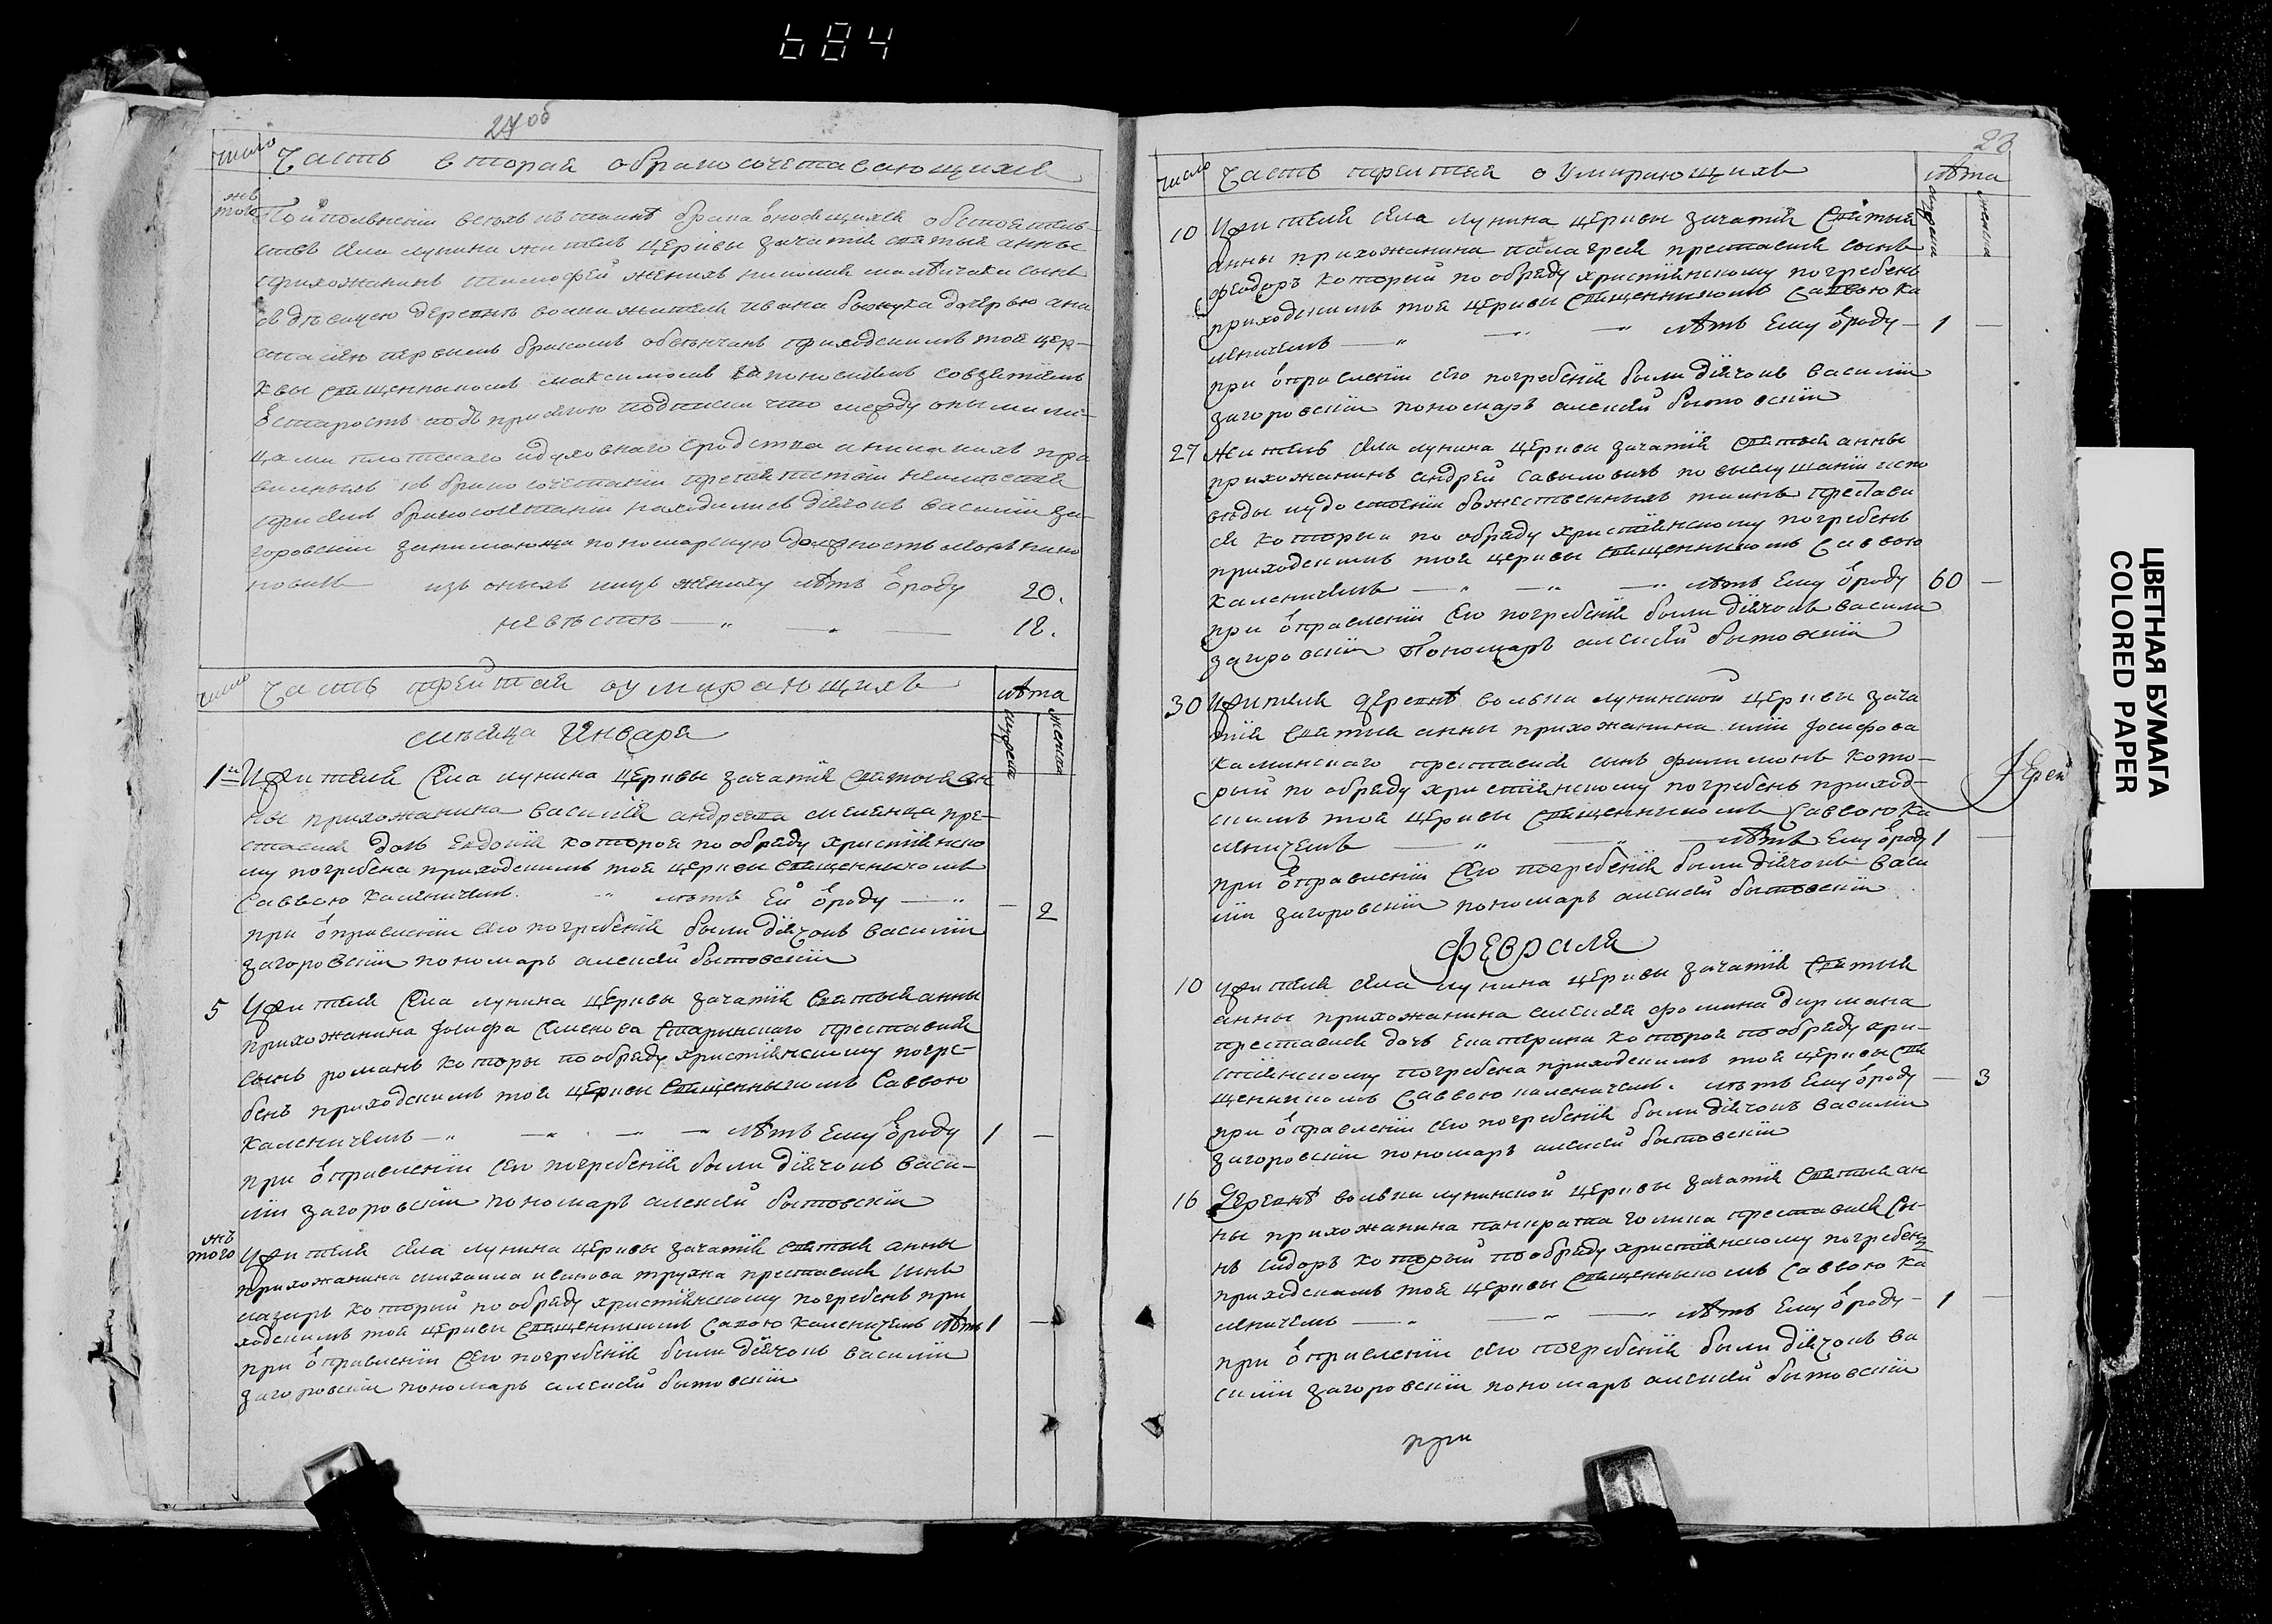 684
число Часть вторая о бракосочетавающихся
жъ того По исполненіи всѣхъ къ таинѣ брака относящихся обстоятель-
ствъ села лунина житель церквы зачатія святыя анны
прихожанинъ тимофей женихъ сынъ
съ дѣвицею деревнѣ вольки жителя ивана дочерью ана
стасіею первымъ бракомъ обвѣнчанъ приходскимъ той цер-
квы священникомъ максимомъ совзятіемъ
старостъ подъ присягою подписки что между оными ли-
цами плотскаго идуховнаго сродства иникакихъ пра
вильныхъ къ бракосочетанію препятствій неимѣется
при семъ бракосочетаніи находились діячокъ василій за-
горовскій занимающи пономарскую должность
изъ оныхъ лицъ жениху лѣтъ отроду 20.
невѣстѣ — „ — „ — 18.
число Часть третая оумирающихъ лѣта
мужеска женска
мѣсяца Января
1го Жителя села лунина церквы зачатія святыя ан
ны прихожанина василія андреева пре-
ставися дочь Евдокія которая пообряду христіянско
му погребена приходскимъ той церквы священникомъ
саввою каленичемъ. „ лѣтъ Ей отроду — „ — 2
при отправленіи сего погребенія были дiячокъ василій
загоровскій пономарь алексѣй бытовскій
5 Жителя села лунина церквы зачатія святыя анны
прихожанина Іосифа семенова преставися
сынъ романъ которы пообряду христіянскому погре-
бенъ приходскимъ той церквы священникомъ Саввою
каленичемъ — „ — „ — — „ лѣтъ Ему отроду 1 —
при отправленіи сего погребенія были дiячокъ васи-
лій загоровскій пономарь алексѣй бытовскій
жъ того Жителя села лунина церквы зачатія святыя анны
прихожанина михаила преставися сынъ
лазарь которий пообряду христіянскому погребенъ при
ходскимъ той церквы священникомъ савою каленичемъ лѣтъ 1 —
при отправленіи сего погребенія были дiячокъ василій
загоровскій пономарь алексѣй бытовскій
28
число Часть третая оумирающихъ лѣта
мужеска женска
10 Жителя села лунина церквы зачатія святыя
анны прихожанина преставися сынъ
феодоръ которий пообряду христіянскому погребенъ
приходскимъ той церквы священникомъ саввою ка
леничемъ — „ — „ — „ лѣтъ Ему отроду — 1 —
при отправленіи сего погребенія были дiячокъ василій
загоровскій пономарь алексѣй бытовскій
27 житель села лунина церквы зачатія святыя анны
прихожанинъ андрей по выслушаніи испо
вѣды иудостоеніи божественныхъ таинъ престави
ся которыи по обряду христіянскому погребенъ
приходскимъ той церквы священникомъ Саввою
каленичемъ — „ — „ — „ лѣтъ Ему отроду 60 —
при отправленіи сего погребенія были дiячокъ васили
загоровскій Пономарь алексѣй бытовскій
30 Жителя деревнѣ вольки лунинской церквы зача
тія святыя анны прихожанина иліи Іосифова
каминскаго преставися сынъ филимонъ кото-
рый по обряду христіянскому погребенъ приход-
скимъ той церквы священникомъ Саввою ка
леничемъ — „ — „ — лѣтъ Ему отроду 1 —
при отправленіи сего погребенія были дiячокъ васи
лій загоровскій пономарь алексѣй бытовскій
Іерей
Февраля
10 Жителя села лунина церквы зачатія святыя
анны прихожанина алексѣя фомина дирмана
преставися дочь Екатерина которая пообряду хри-
стіянскому погребена приходскимъ той церквы свя
щенникомъ Саввою каленичемъ. лѣтъ Ему отроду — 3
при отправленіи сего погребенія были дiячокъ василій
загоровскій пономарь алексѣй бытовскій
16 Деревнѣ вольки лунинской церквы зачатія святыя ан
ны прихожанина панкратга преставися сы-
нъ сидоръ который пообряду христіянскому погребенъ
приходскимъ той церквы священникомъ Саввою ка
леничемъ — „ — „ — „ лѣтъ Ему отроду — 1 —
при отправленіи сего погребенія были дiячокъ ва
силій загоровскій пономарь алексѣй бытовскій
при
ЦВЕТНАЯ БУМАГА
COLORED PAPER